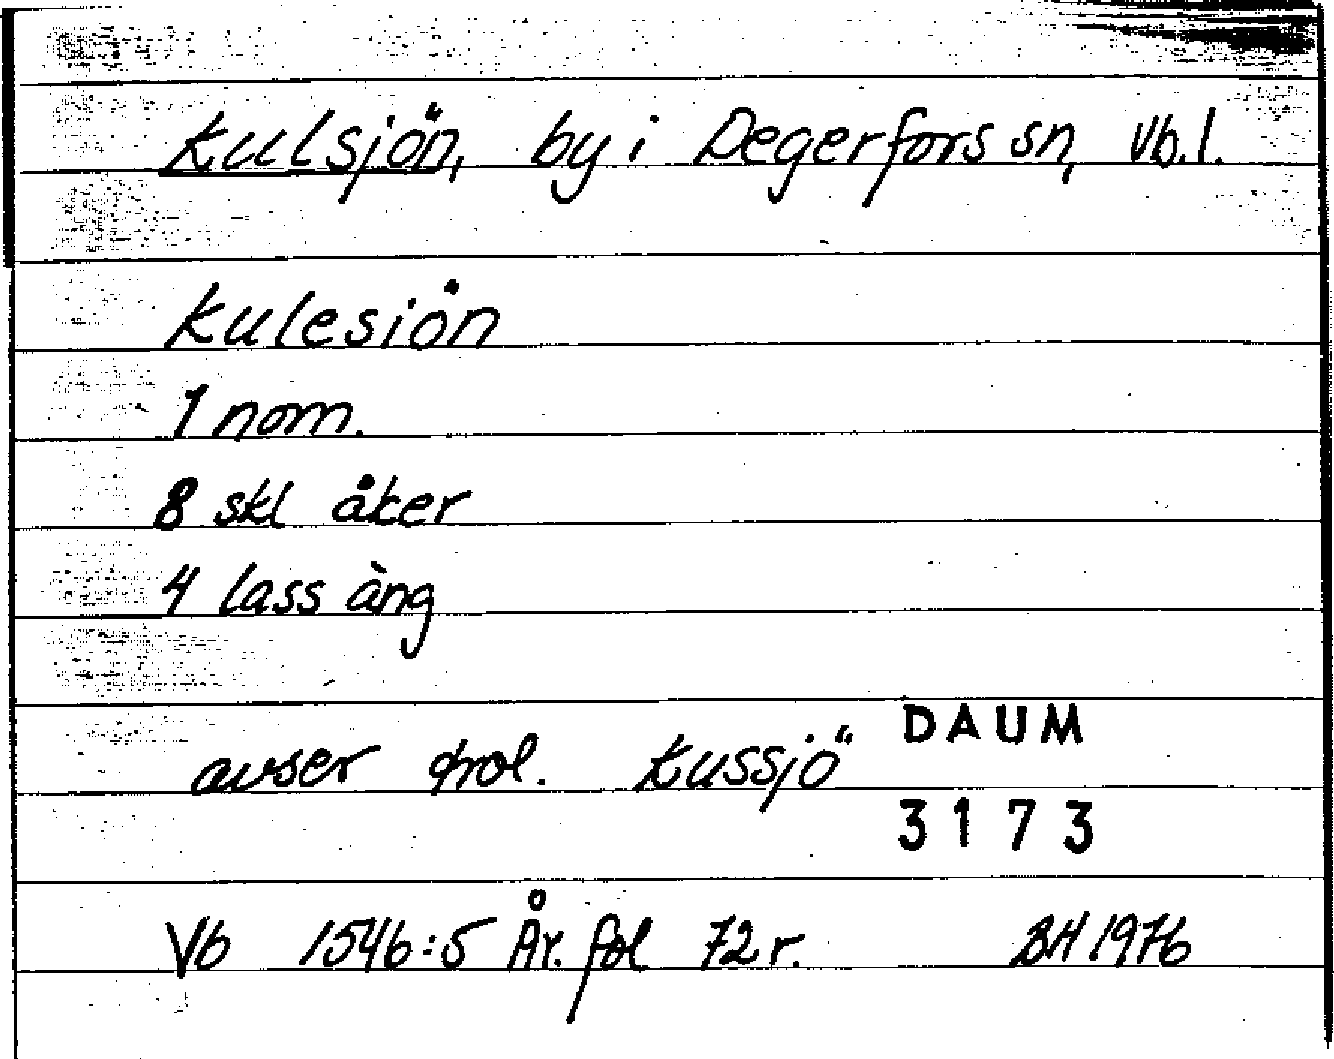 Kulsjön, by i Degerfors sn, Vb.l.
Kulesiön
1 nom.
8 skl åker
4 lass äng
avser trol. Kussjö
DAUM
3173
Vb 1546:5 År. fol 72 r. BH 1976